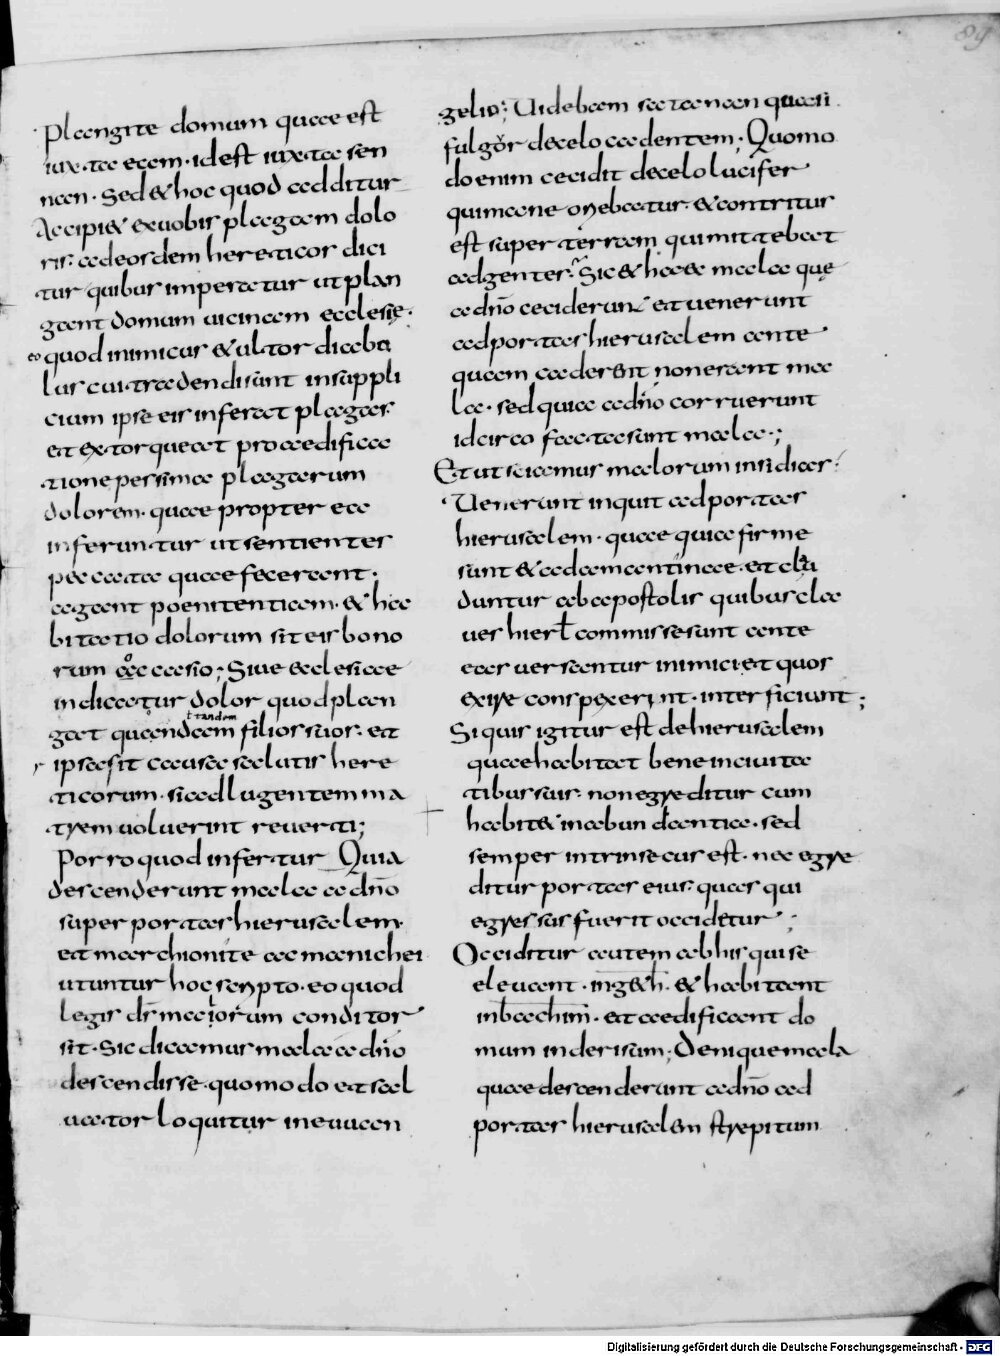 89
Plangite domum quae est
iuxta eam · id est iuxta sen
nan · Sed & hoc quod additur
Accipi& exuobis plagam dolo
ris · ad eosdem hereticor dici
tur quibus imperatur ut plan
gant domum uicinam ecclesię ·
eo quod inimicus & ultor diabo
lus cui tradendi sunt in suppli
cium ipse eis inferat plagas
et extorqueat pro aedifica
tione pessima plagarum
dolorem · quae propter ea
inferuntur ut sentientes
peccata quae fecerant ·
agant poenitentiam · & ha
bitatio dolorum sit eis bono
rum occasio ; Siue ecclesiae
indicatur dolor quod plan
ł tandem
gat quendam filios suos · et
ipsa sit causa salutis here
ticorum · si ad lugentem ma
trem uoluerint reuerti ;
Porro quod infertur Quia
descenderunt mala a dño
super portas hierusalem ·
et marchionite ac manichei
utuntur hoc scripto · eo quod
legis dr̄ maiorum conditor
sit · Sic dicamus mala a dño
descendisse · quomodo et sal
uator loquitur in euuan
gelio ; Uidebam satanan quasi
fulgor de caelo cadentem ; Quomo
do enim cecidit de celo lucifer
qui mane oriebatur · & contritus
est super terram qui mittebat
ad gentes · Sic & haec mala quę
a dño ceciderunt et uenerunt
ad portas hierusalem ante
quam caderent non erant ma
la · sed quia a dño corruerunt
idcirco facta sunt mala ·;
Et ut sciamus malorum insidias :
Uenerunt inquit ad portas
hierusalem · quae quia firme
sunt & adamantinae · et clau
duntur ab apostolis quibus cla
ues hierł commisse sunt ante
eas uersantur inimici et quos
exire conspexerint · interficiunt ;
Si quis igitur est de hierusalem
quae habitat bene in ciuita
tibus suis · non egreditur cum
habit& in abundantia · sed
semper intrinsecus est · nec egre
ditur portas eius · quas qui
egressus fuerit occiditur ·;
Occiditur autem ab his qui se
eleuant · in geth · & habitant
in bachim · et aedificant do
mum in derisum ; Denique mala
quae descenderunt a dño ad
portas hierusalem strepitum
Digitalisierung gefördert durch die Deutsche Forschungsgemeinschaft - DFG